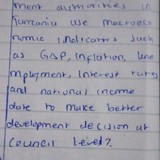 ment authorities in
Tanzania use macroeco
nomic indicators such
as GDP, inflation, une
mployment, interest rates
and national income
data to make better
development decision at
council level?